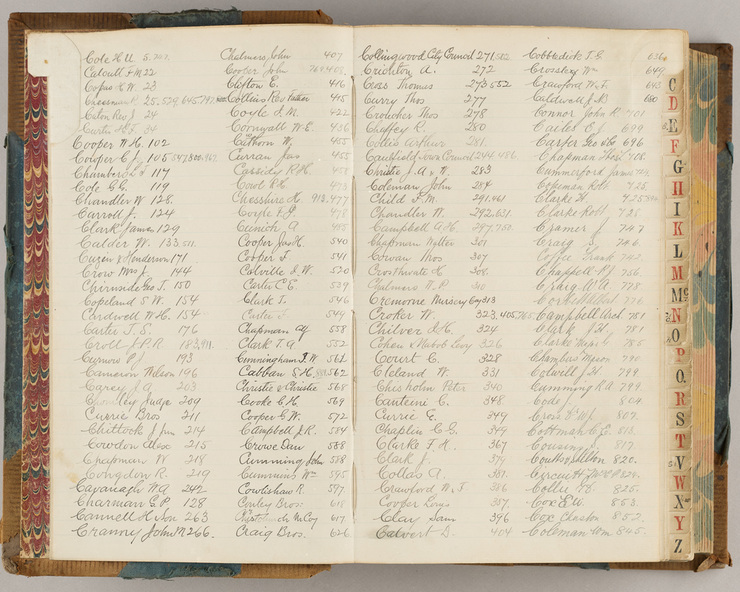 Cole H U 5.
Calcutt J M 22
Copas H W. 23
25. 529, 645, 792
Eaton Rev J 24
Curtis H. F. 34
Cooper W. H. 102
Cooper E. J. 105
Chambers 117
Cole G G. 119
Chandler W 128.
Carroll J. 124
Clark James 129
Calder W. 133
Curzen & Henderson 171
Crow Mrs J. 144
Chirnside Geo J. 150
Copeland S W. 154
Cardwell W H. 154
Carter J. S. 176
Croll J. P. R 183
193
Cameron Wilson 196
Carey J A 203
Judge 209
Currie Bros 211
Chittock J jun 214
Crowdon Alex 215
Chapman W 218
Congdon R. 219
Cavanagh W A 242
Charman G P. 128
Cannell H Son 263
Cranny John M 266.
Chalmers John 407
Cooper John
Clifton E. 416
Collins Rev Father 405
Coyle J. M. 422
Cornwall W E. 436
W. 455
Curran Jas 455
Cassidy R H. 458
Cool R H.
Chesshire H. 913, 477
Coyle F J 478
Eunick A
Cooper Jas H. 540
Cooper T 541
Colville D. W. 520
Carter C E. 539
Clark T. 546
Carter J 549
Chapman Alf 558
Clark T. A 552
Cunningham J. W. 561
Cabban S H. 562
Christie & Christie 568
Cooke C H. 569
Cooper G. W. 572
Campbell J R. 584
Crowe Dan 568
Cumming John 578
Cummins Wm 595
Cowlishaw R. 597
Conley Bros. 618
McCoy 617
Craig Bros. 626
Collingwood City Council 271
Crichton A. 272
Cross Thomas 273, 552
Curry Thos 277
Croucher Thos 278
Chaffey R. 280
Coles Arthur 281
Caulfield Shire Council 244. 486
Christie J. A & W. 283
Coleman John 284
Child F. M. 291. 461
Chandler W. 292. 631.
Campbell A. H. 297. 700
Chapman Walter 301
Cowan Thos 307
Crosthwaite H 308.
Chalmers W. P 310
Cremorne Nursery Coy 313
Croker W. 323, 405, 765
Chilver D. H. 324
Cohen & Nabob Levy 326
Court C. 328
Cleland W. 331
Chisholm Peter 340
Canteri C. 348
Currie E. 349
Chaplin C G. 349
Clarke F. H. 367
Clark J. 374
Collas A. 381.
Crawford W, J 386
Cooper Louis 387.
Clay Sam 396
Calvert D. 404
Cobbledick T. G. 636
Crossley Wm 649
Crawford W. F. 645
Caldwell J. D. 680
Connor John R 701
Carlet E J 699
Carter Geo & Co 696
Chapman Thos J. 708.
Cummerford James
Copeman Robt 725.
Clarke H. 425
Clarke Robt 735.
Cramer J 747
Craig J 746.
Coffee Frank 742.
Chappell R J 756
Craig W. A 778
776
Campbell Arch 781
Clark J H 781
785
Chambers Myson 790
Colwell J H 799
Cumming R. A 799.
Code J. 804
Cross D. W J. 807.
Cottman C. E. 813.
Cousins J. 817.
Coutts & Hilton 820.
Collie H 825.
Cox E W. 853.
Cox Cluston 852.
Coleman Wm 845.
C
D
E
F
G
H
I
K
L
M
Mc
N
O
P
Q
R
S
T
V
W
X
Y
Z